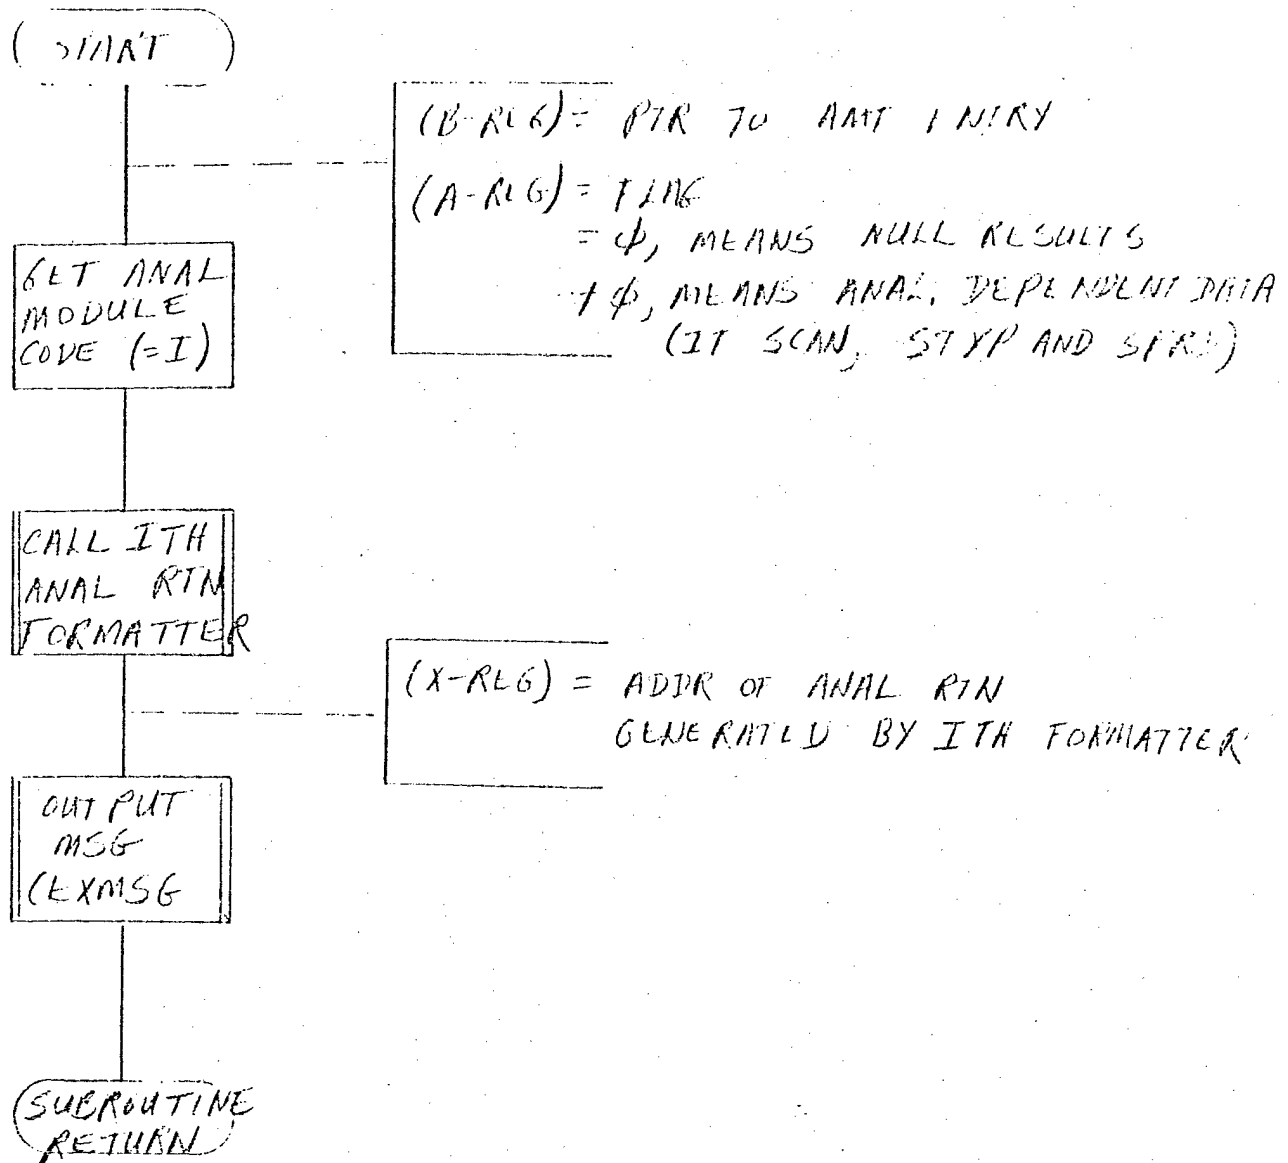 START
(B-REG) = PTR TO AMT ENTRY
(A-REG) = FLAG
= φ, MEANS NULL RESULTS
≠ φ, MEANS ANAL. DEPENDENT DATA
(IF SCAN, STYP AND
GET ANAL
MODULE
CODE (=I)
CALL ITH
ANAL RTN
FORMATTER
(X-REG) = ADDR OF ANAL RTN
GENERATED BY ITH FORMATTER
OUTPUT
MSG
(EXMSG
SUBROUTINE
RETURN